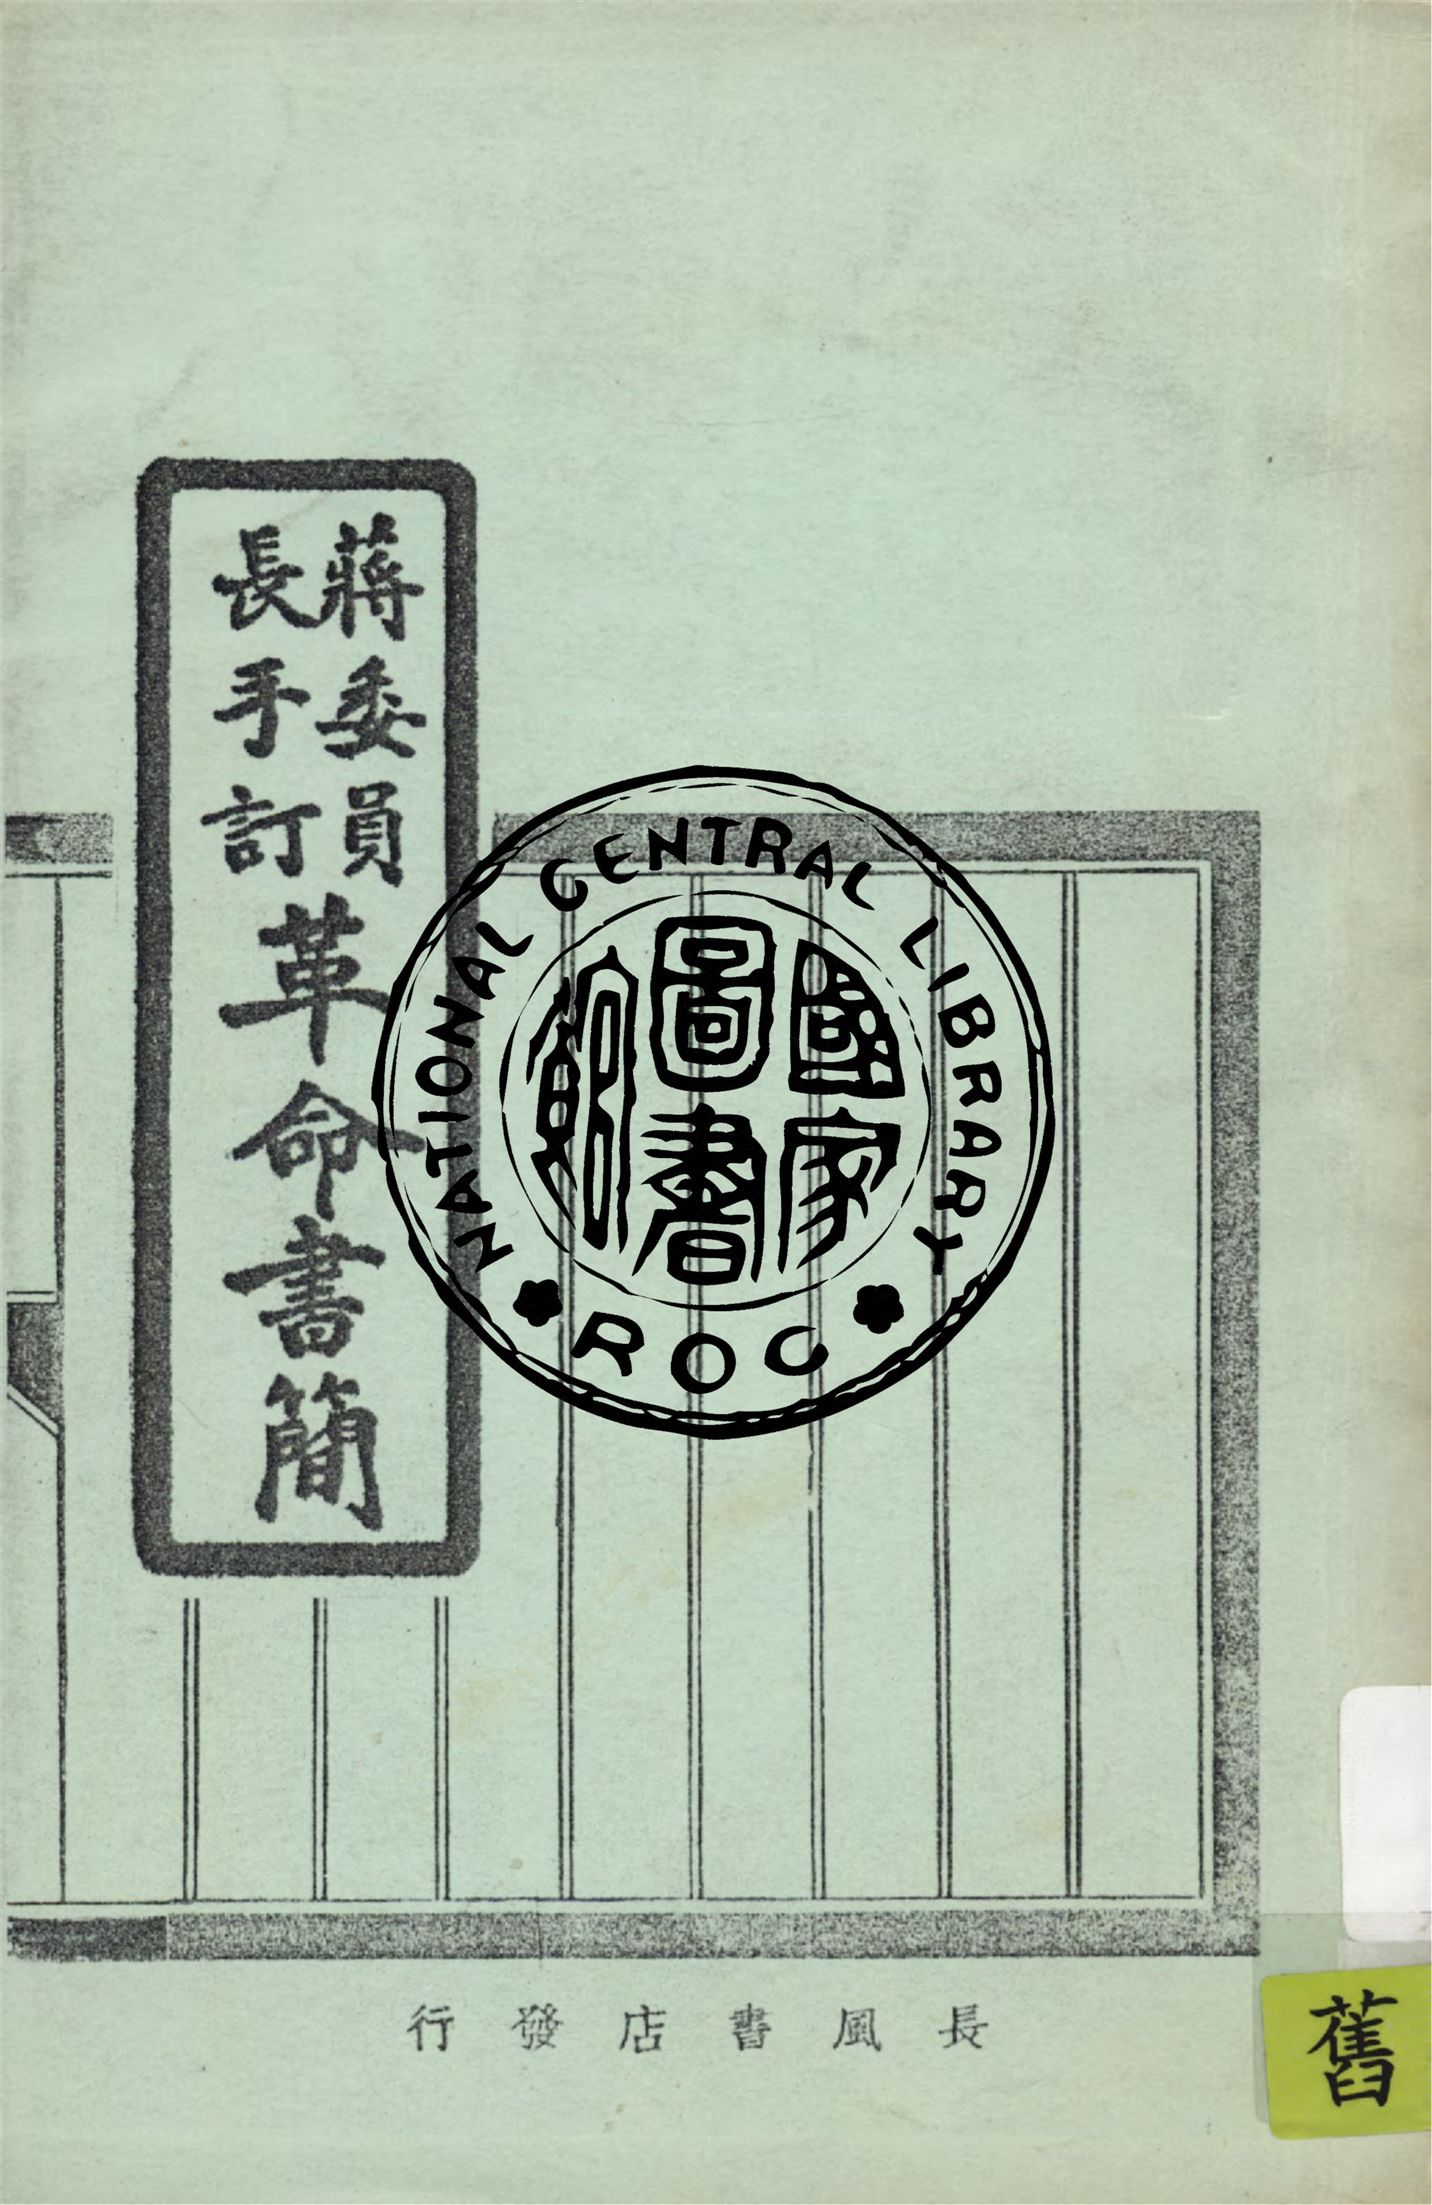 蔣委員
長手訂
革命書簡
NATIONAL CENTRAL LIBRARY
國家
圖書
館
ROC
長風書店發行
舊